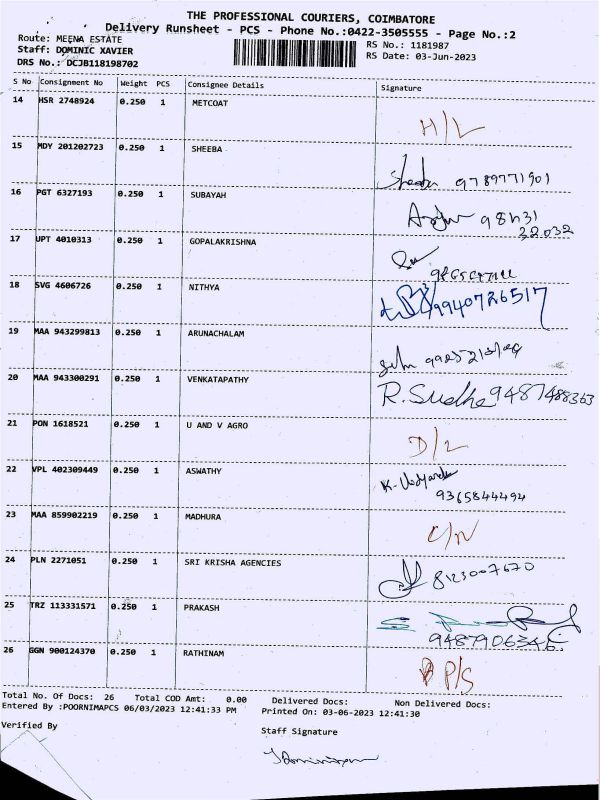 THE PROFESSIONAL COURIERS, COIMBATORE
Delivery Runsheet - PCS - Phone No.:0422-3505555 - Page No.:2
Route: MEENA ESTATE
Staff: DOMINIC XAVIER
DRS No.: DCJB118198702
RS No.: 1181987
RS Date: 03-Jun-2023
S No Consignment No Weight PCS Consignee Details Signature
14 HSR 2748924 0.250 1 METCOAT H/L
15 MDY 201202723 0.250 1 SHEEBA Sheeba 9789771901
16 PGT 6327193 0.250 1 SUBAYAH
17 UPT 4010313 0.250 1 GOPALAKRISHNA
18 SVG 4606726 0.250 1 NITHYA 9940726517
19 MAA 943299813 0.250 1 ARUNACHALAM
20 MAA 943300291 0.250 1 VENKATAPATHY R. Sudha 9487488363
21 PON 1618521 0.250 1 U AND V AGRO D/L
22 VPL 402309449 0.250 1 ASWATHY 9365844494
23 MAA 859902219 0.250 1 MADHURA C/N
24 PLN 2271051 0.250 1 SRI KRISHA AGENCIES 8123007670
25 TRZ 113331571 0.250 1 PRAKASH
26 GGN 900124370 0.250 1 RATHINAM P/S
Total No. Of Docs: 26 Total COD Amt: 0.00 Delivered Docs: Non Delivered Docs:
Entered By :POORNIMAPCS 06/03/2023 12:41:33 PM Printed On: 03-06-2023 12:41:30
Verified By Staff Signature